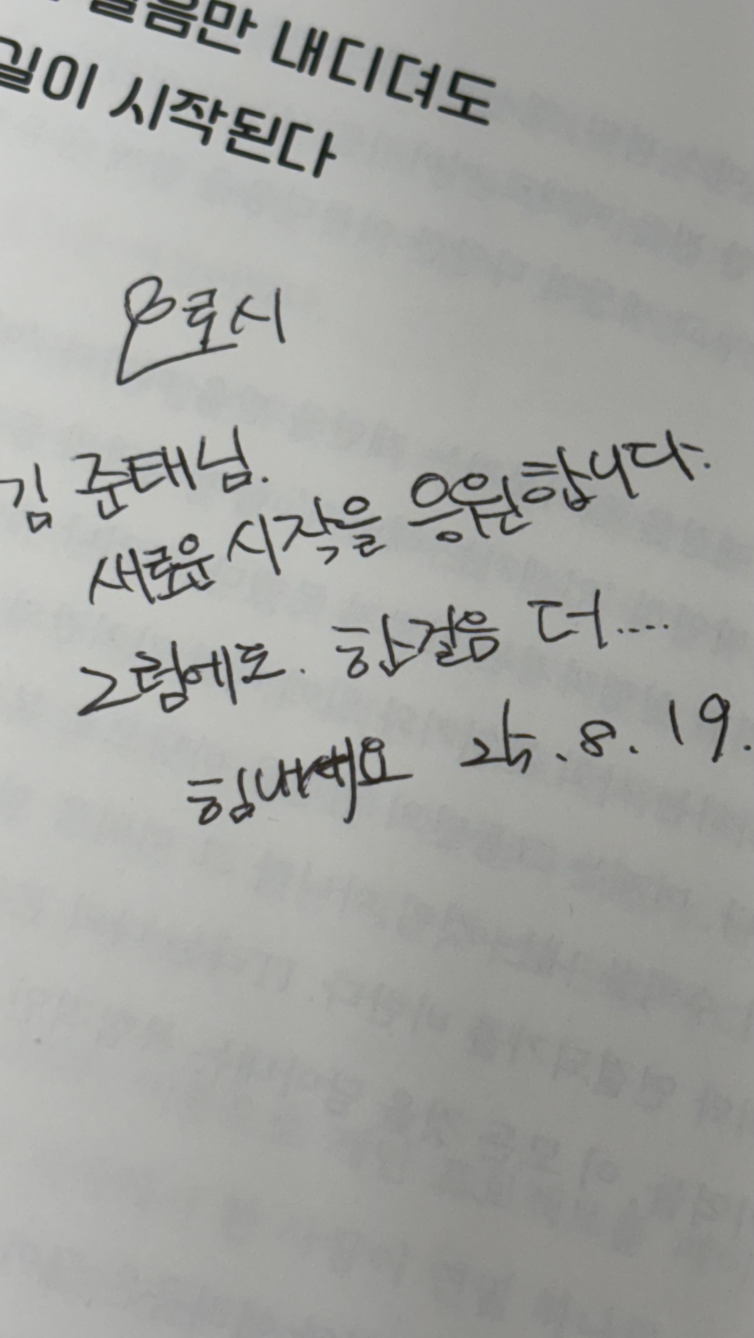 걸음만 내디뎌도
길이 시작된다
요로시
김 준태님.
새로운 시작을 응원합니다.
그럼에도. 한걸음 더....
힘내세요 25.8.19.